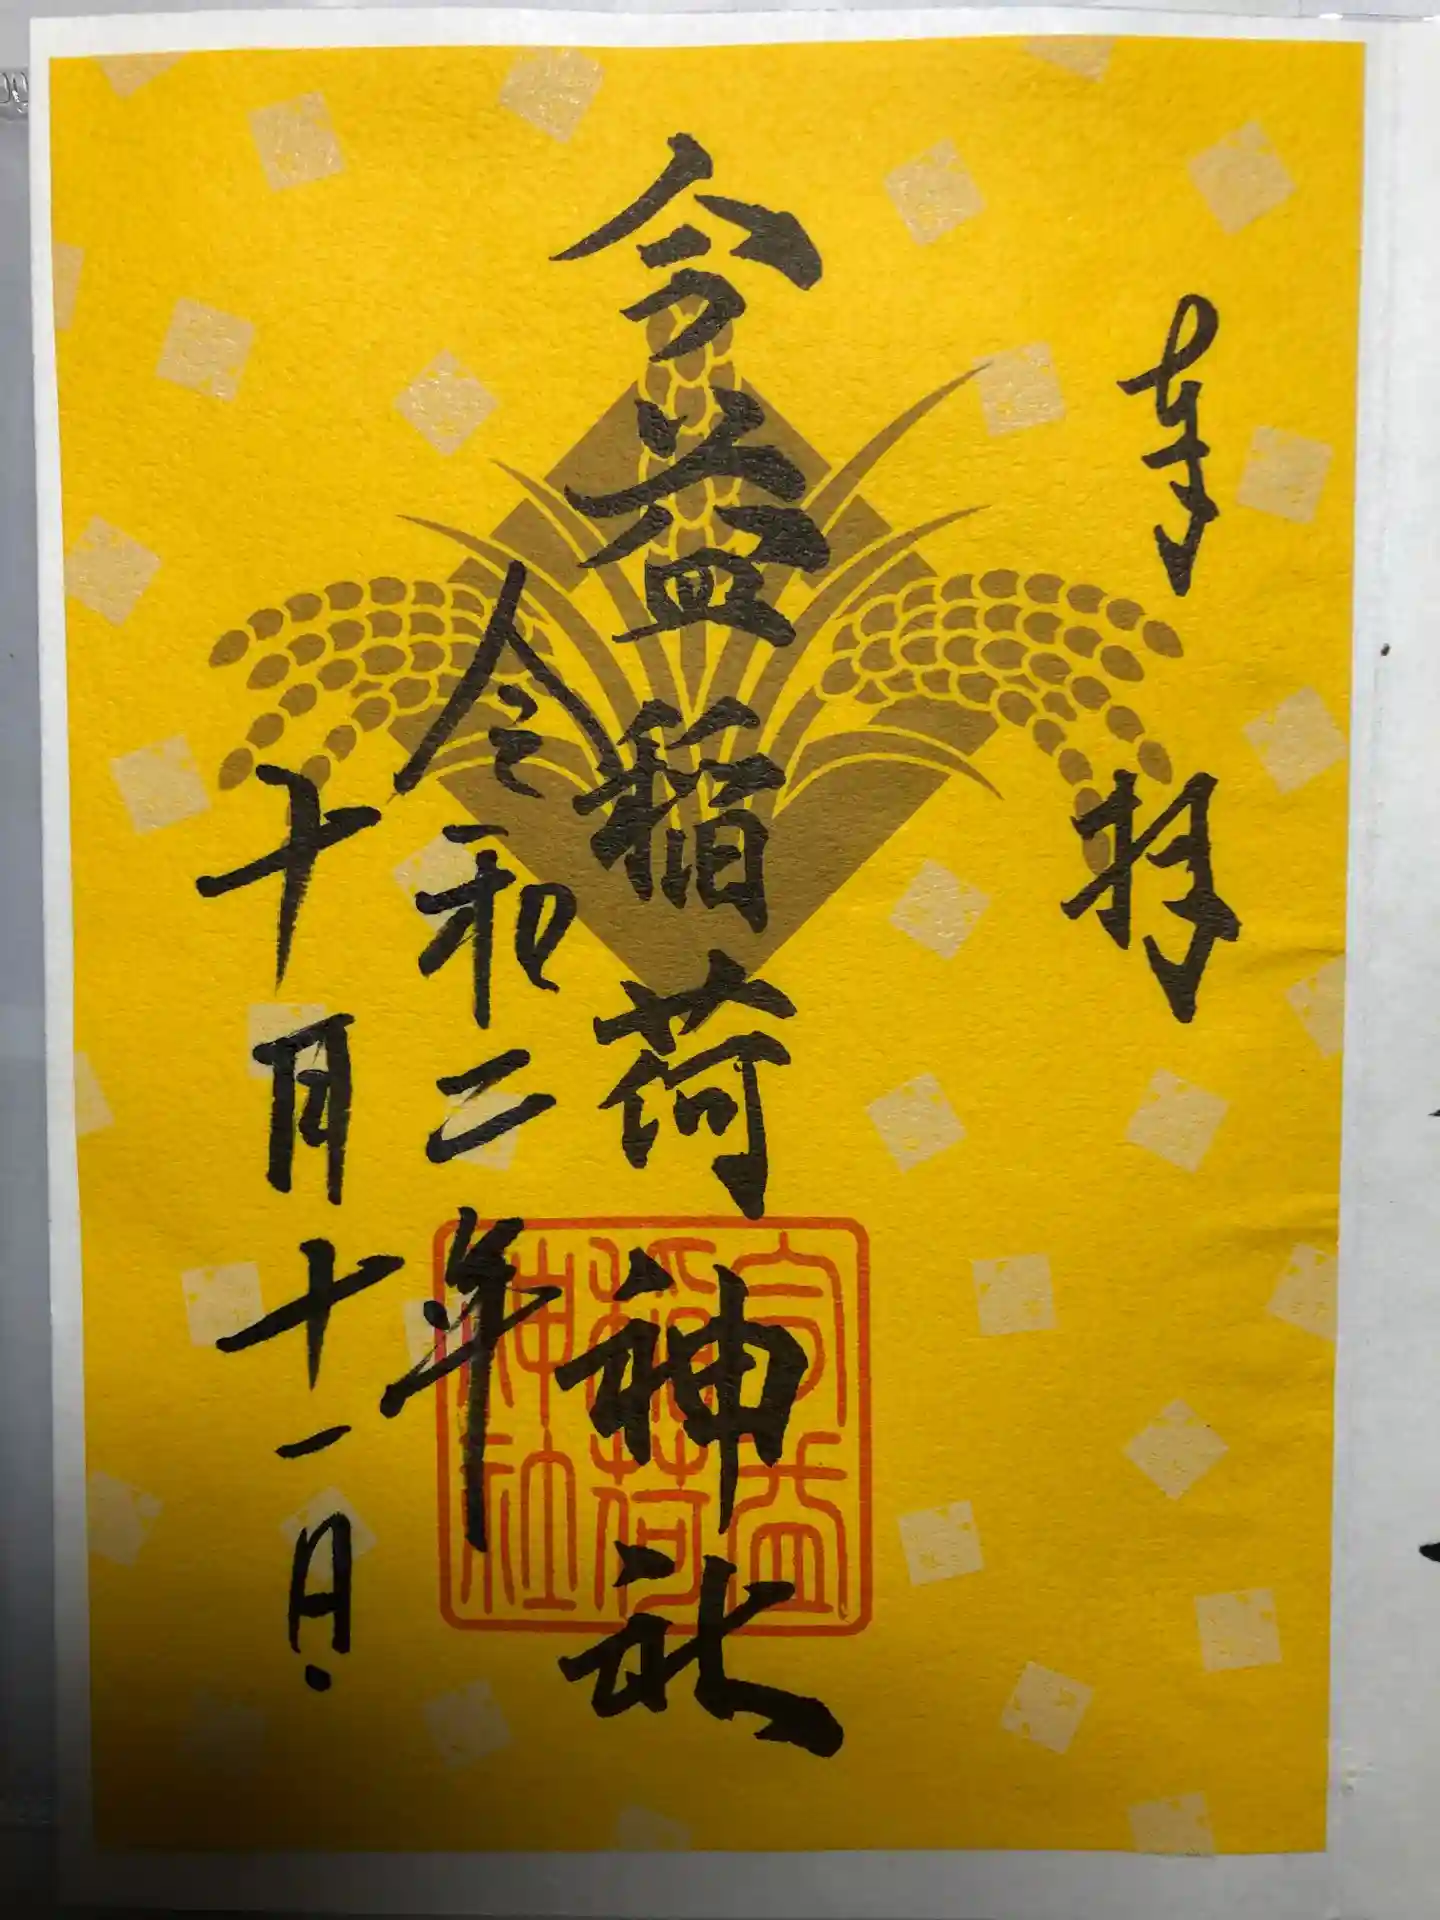 奉拝
今益稲荷神社
令和二年
十月十一日
今益
稲荷
神社